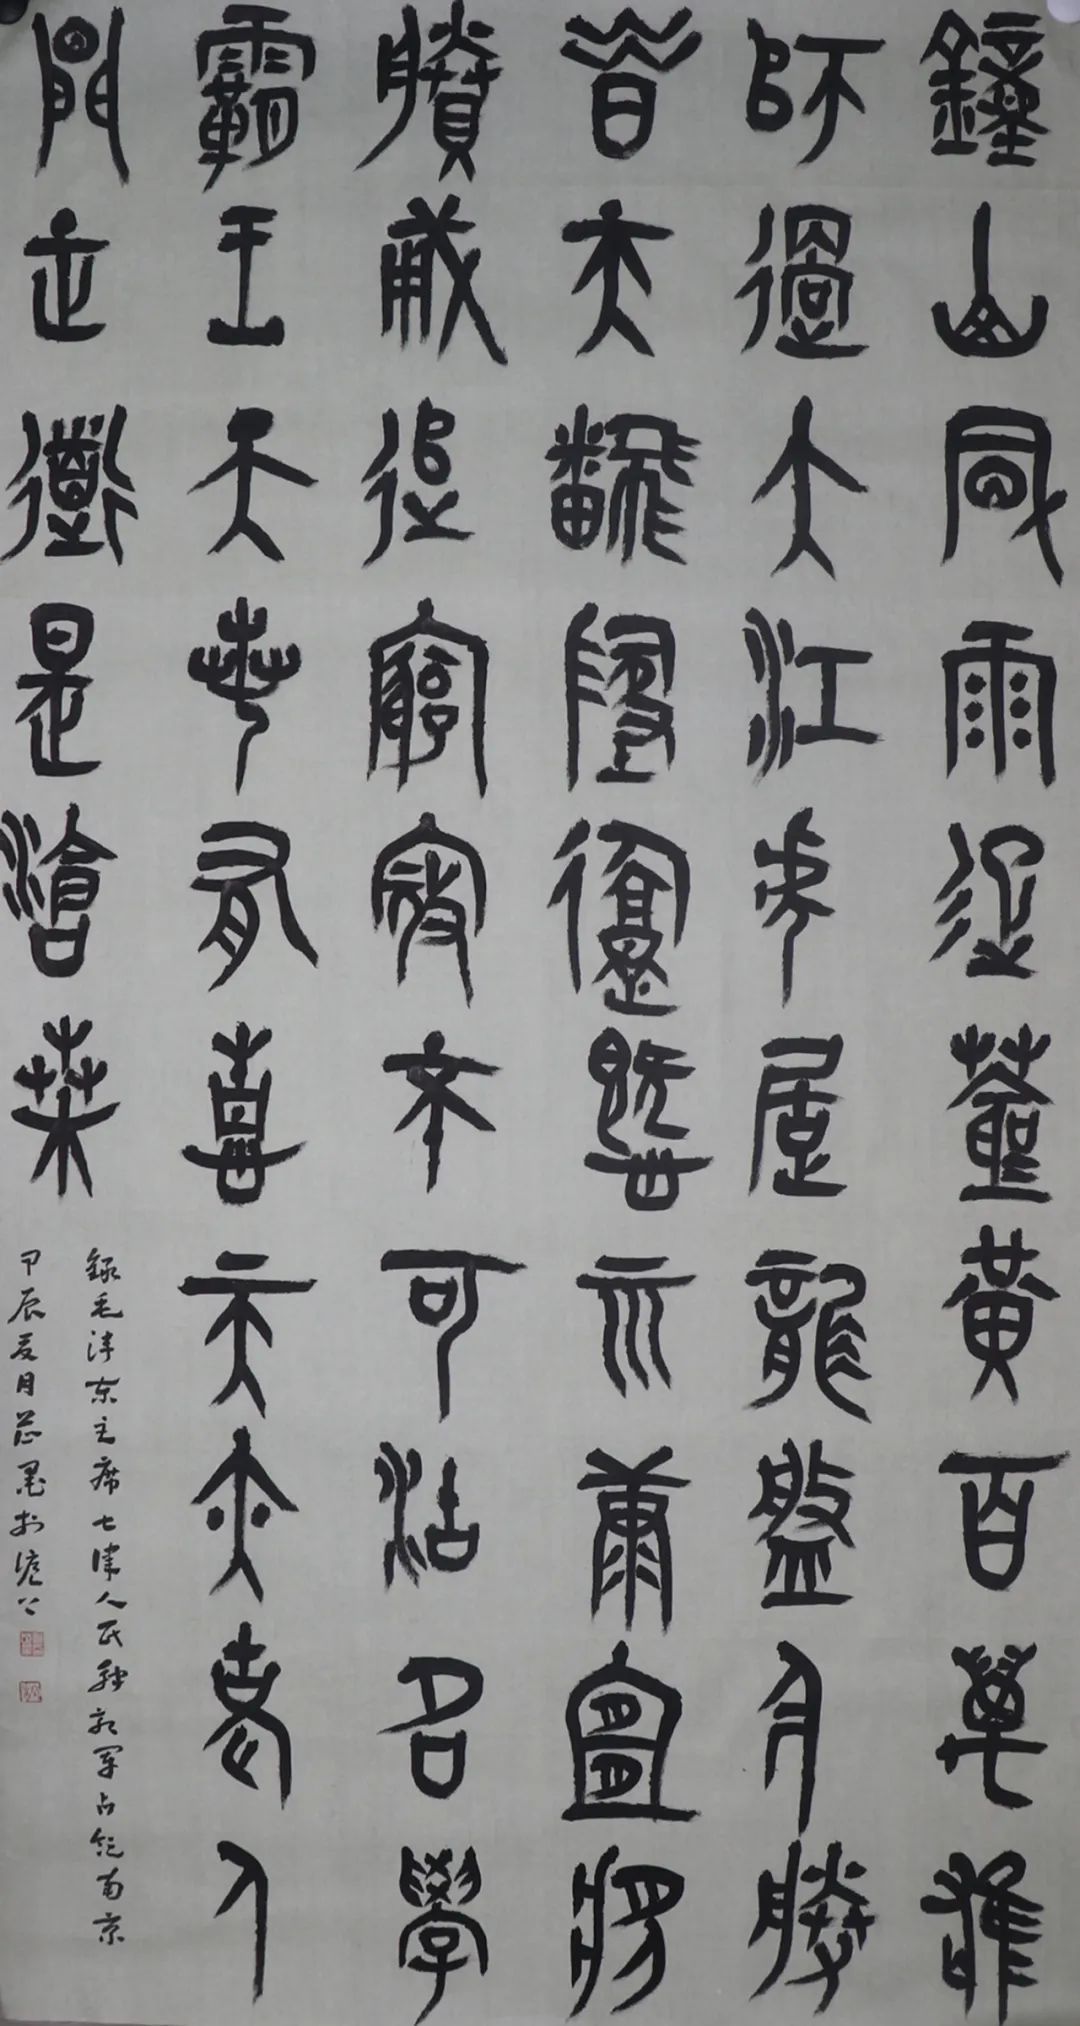 鐘山風雨起蒼黃百萬雄
師過大江虎踞龍盤今勝
昔天翻地覆慨而慷宜將
賸勇追窮寇不可沽名學
霸王天若有情天亦老人
間正道是滄桑
錄毛澤東主席七律人民解放軍占領南京
甲辰夏月